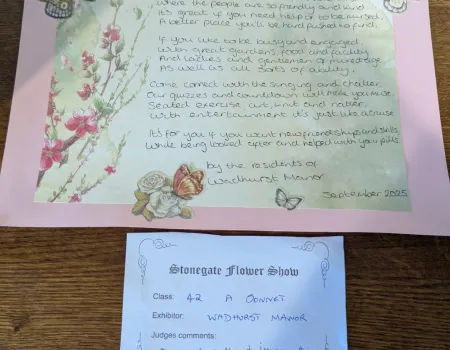 where the people are so friendly and kind.
It's great if you need help or to be nursed,
A better place you'll be hard pushed to find.
If you like to be busy and engaged.
With great gardens, food and facility
And ladies and gentlemen of mixed age
As well as all sorts of ability.
Come connect with the singing and chatter.
Our quizzes and countdown will make you muse.
Seated exercise, art, knit and natter.
With entertainment it's just like a cruise
It's for you if you want new friendships and skills.
While being looked after and helped with your pills.
by the residents of
Wadhurst Manor
September 2025
Stonegate Flower Show
Class: 42 A SONNET
Exhibitor: WADHURST MANOR
Judges comments: